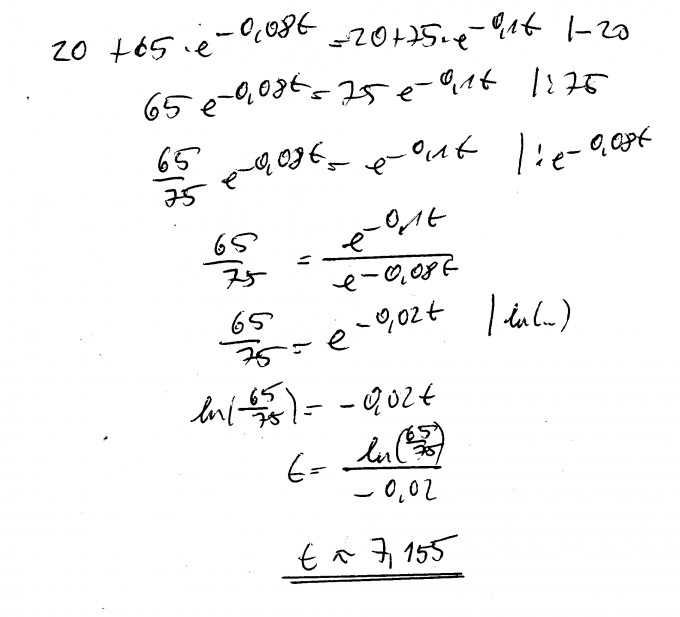 20 + 65 · e^{-0,08t} = 20 + 75 · e^{-0,1t} | -20
65 e^{-0,08t} = 75 e^{-0,1t} | : 75
\frac{65}{75} e^{-0,08t} = e^{-0,1t} | : e^{-0,08t}
\frac{65}{75} = \frac{e^{-0,1t}}{e^{-0,08t}}
\frac{65}{75} = e^{-0,02t} | ln(...)
ln(\frac{65}{75}) = -0,02t
t = \frac{ln(\frac{65}{75})}{-0,02}
t ≈ 7,155